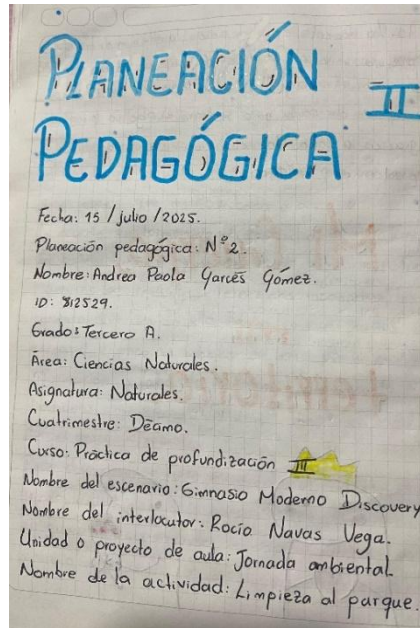 PLANEACIÓN II
PEDAGÓGICA
Fecha: 15 / julio / 2025.
Planeación pedagógica: N°2.
Nombre: Andrea Paola Garcés Gómez.
ID: 812529.
Grado: Tercero A.
Área: Ciencias Naturales.
Asignatura: Naturales.
Cuatrimestre: Décimo.
Curso: Práctica de profundización III
Nombre del escenario: Gimnasio Moderno Discovery
Nombre del interlocutor: Rocío Navas Vega.
Unidad o proyecto de aula: Jornada ambiental.
Nombre de la actividad: Limpieza al parque.